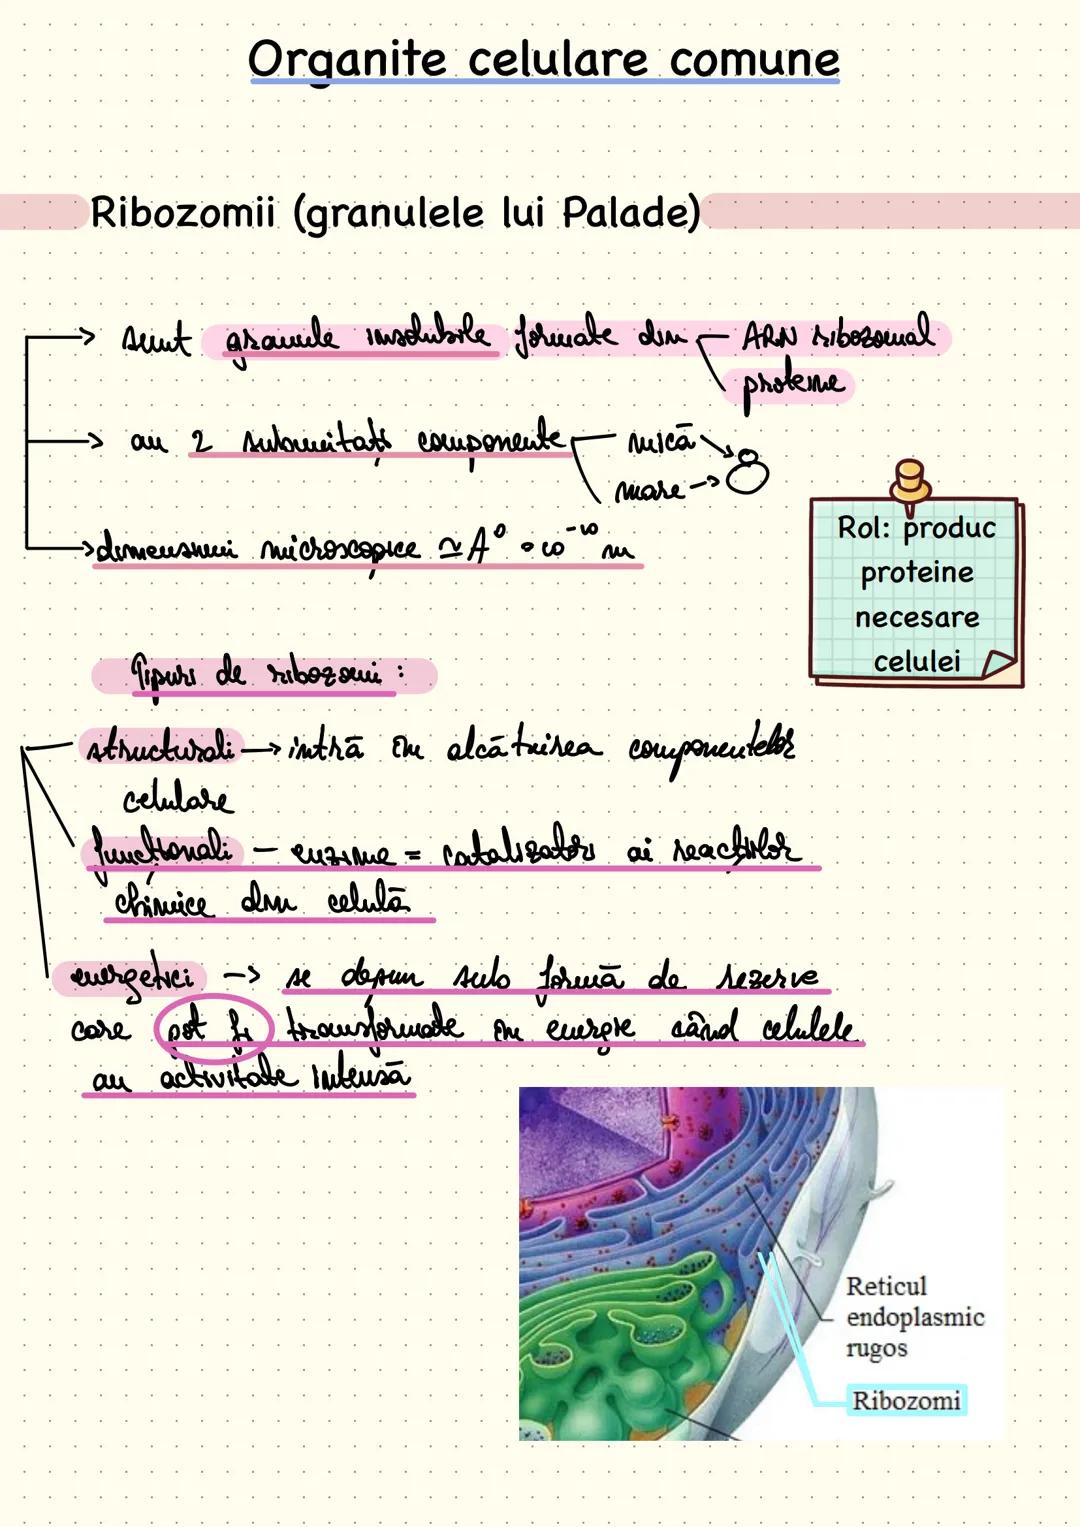 Organite celulare comune
Ribozomii (granulele lui Palade)
sunt granule insolubile formate din ARN ribozomal
proteine
au 2 subunitați componente mică
mare
dimensiuni microscopice ≃ A° = 10⁻¹⁰ m
Rol: produc
proteine
necesare
celulei
Tipuri de ribozomi :
structurali → intră în alcătuirea componentelor
celulare
funcționali – enzime = catalizatori ai reacțiilor
chimice din celulă
energetici → se depun sub formă de rezerve
care pot fi transformate în energie când celulele
au activitate intensă
Reticul
endoplasmic
rugos
Ribozomi